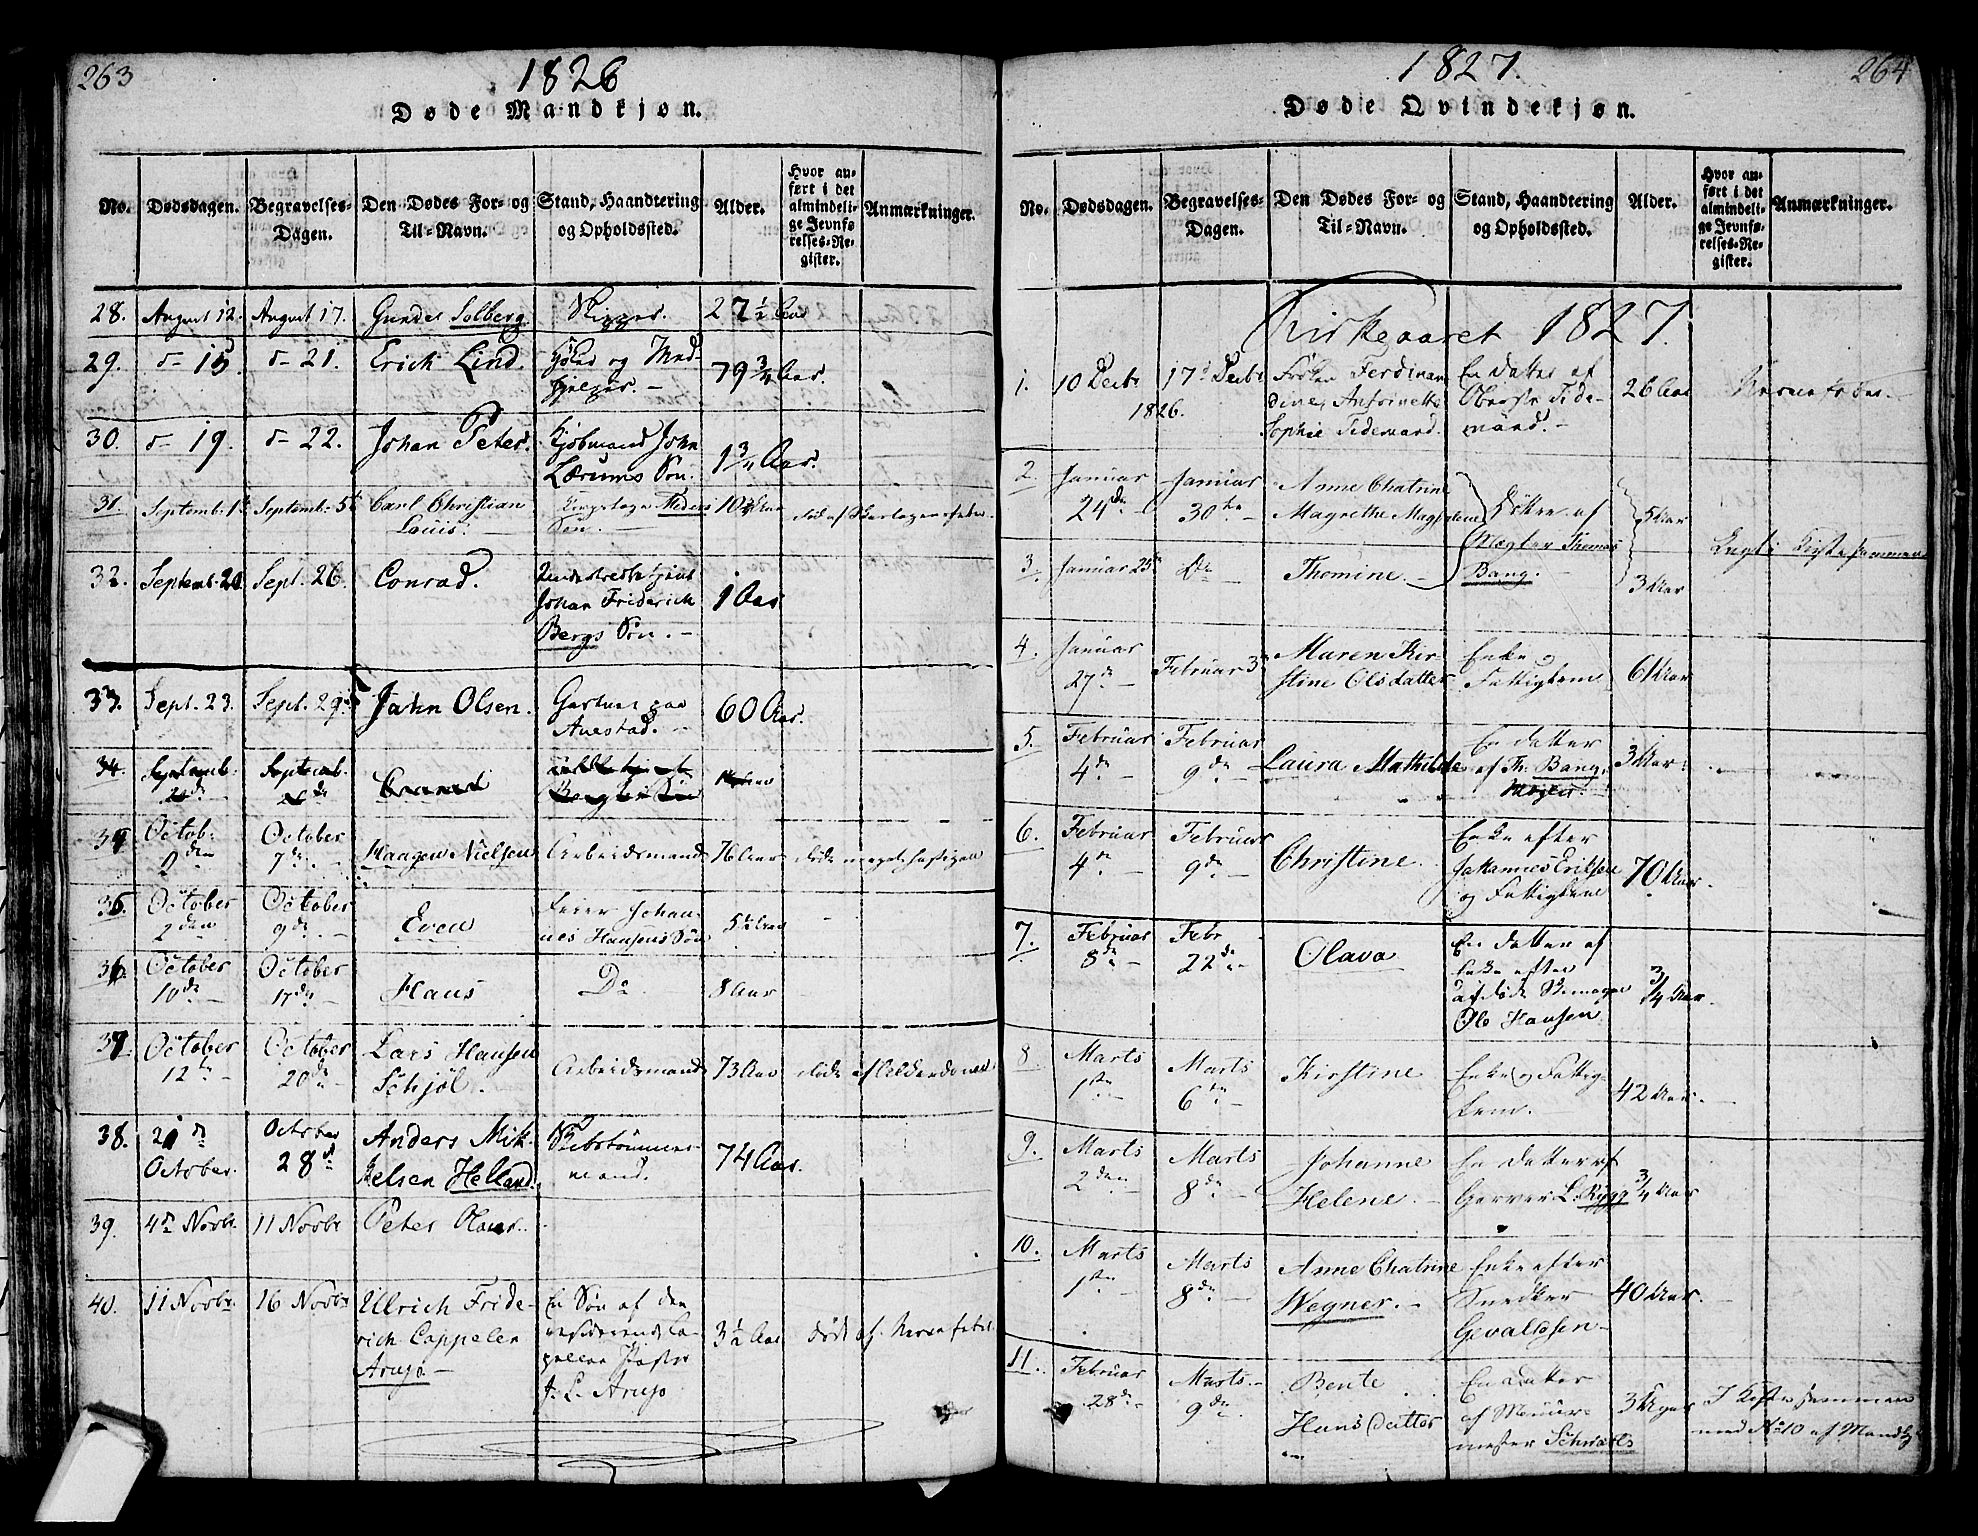 263
1826
Døde Mandkjøn.
No. Dødsdagen. Begravelses-Dagen. Den Dødes For- og Til-Navn. Stand, Haandtering og Opholdssted. Alder. Hvor anført i det almindelige Jevnførelses-Register. Anmærkninger.
28. August 12. August 17. Gunder Solberg Skipper. 27 1/2 Aar
29. 15 21. Erich Lind 79 3/4 Aar.
30. 19. 22. Johan Peter. Kjøbmand John Lærums Søn. 1 3/4 Aar.
31. Septemb: 1 Septemb: 5 Carl Christian Louis. Søn.
32. Septemb. 20 Sept. 26. Conrad. Johan Friderich Bergs Søn. 1 Aar
33. Sept. 23. Sept. 29. Jahn Olsen. Gartner paa 60 Aar.
34. Septemb. Septemb. Conrad
October 7de Haagen Nielsen Arbeidsmand 76 Aar
October 2den October 9de Even Leier Johannes Hansens Søn 5 1/2 Aar
36. October 10de October 17de Hans Do 8 Aar
37. October 12te October 20de Lars Hansen Schjöl. Arbeidsmand 73 Aar døde af Alderdom
38. 21de October. October 28de Anders Mikkelsen Helland. Skibstømmermand. 74 Aar.
39. 4de Novbr. 11 Novbr Peter Olaus.
40. 11 Novbr. 16 Novbr Ullrich Friderich Cappelen Arupo En Søn af den residerende Capellan J. L. Arupo 3 1/2 Aar død af Nervefeber
1827.
264
Døde Qvindekjøn.
No. Dødsdagen. Begravelses-Dagen. Den Dødes For- og Til-Navn. Stand, Haandtering og Opholdssted. Alder. Hvor anført i det almindelige Jevnførelses-Register. Anmærkninger.
Kirkeaaret 1827.
1. 10 Decbr 17de Decbr 1826. Frøken Ferdinandine Antoinette Sophie Tidemand. En Datter af Oberste Tidemand. 26 Aar Nervefeber.
2. Januar 24de Januar 30te Anne Chatrine Magrethe Magdalene Døttre af Mægler Thomas Bang. 5 Aar Lagt i Kiste sammen
3. Januar 25 Do Thomine 3 Aar
4. Januar 27de Februar 3 Maren Kirstine Olsdatter Enke Fattiglem 61 Aar
5. Februar 4de Februar 9de Laura Mathilde En Datter af Th. Bang. Mægler. 3 Aar
6. Februar 4de Februar 9de Christine. Enke efter Johannes Eriksen og Fattiglem 70 Aar.
7. Februar 8de Febr 22de Olava En Datter af Enke efter afdøde Skomager Ole Hansen. 3/4 Aar.
8 Marts 1ste Marts 6te Kirstine Enke og Fattiglem. 42 Aar.
9. Marts 2den Marts 8de Johanne Helene. En Datter af Garver L. Rygg 3/4 Aar
10. Marts 1ste Marts 8de Anne Chatrine Wegner. Enke efter Snedker Gevaldsen 40 Aar.
11. Februar 28de Marts 9de Bente Hans Datter En Datter af Muurmester Schwarts 3 Uger I Kiste sammen med No 10 af Mandkj